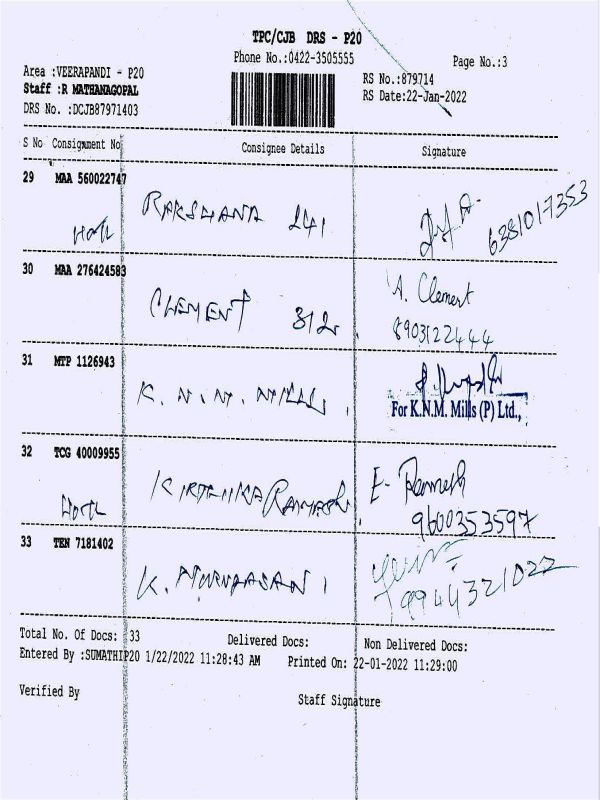 TPC/CJB DRS - P20
Phone No.:0422-3505555
Page No.:3
Area :VEERAPANDI - P20
Staff :R MATHANAGOPAL
DRS No. :DCJB87971403
RS No.:879714
RS Date:22-Jan-2022
S No Consignment No Consignee Details Signature
29 MAA 560022747
RAKSHANA 241
6381017353
30 MAA 276424583
CLEMENT 312
A. Clement
8903122444
31 MTP 1126943
K. N. M. MILLS
For K.N.M. Mills (P) Ltd.,
32 TCG 40009955
KIRTHIKA RAMESH
E. Ramesh
9600353597
33 TEN 7181402
K.
9944321022
Total No. Of Docs: 33 Delivered Docs: Non Delivered Docs:
Entered By :SUMATHIP20 1/22/2022 11:28:43 AM Printed On: 22-01-2022 11:29:00
Verified By Staff Signature